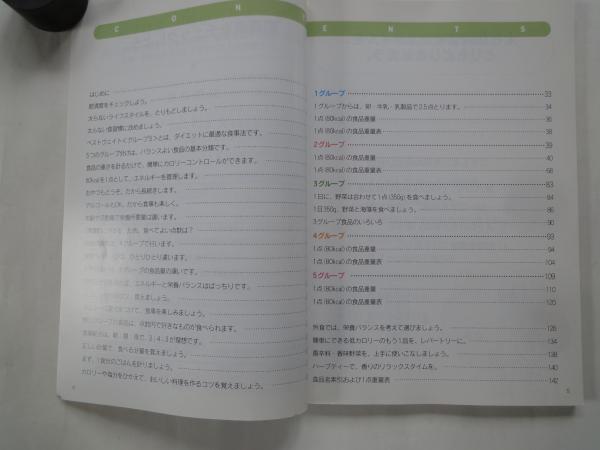 CONTENTS
はじめに
肥満度をチェックしよう。
太らないライフスタイルを、とりもどしましょう。
太らない食習慣に改めましょう。
ベストウェイト＜グループ5＞とは、ダイエットに最適な食事法です。
5つのグループ分けは、バランスよい食品の基本分類です。
食品の重さを計るだけで、簡単にカロリーコントロールができます。
80kcalを1点として、エネルギーを管理します。
おやつもどうぞ。だから長続きします。
アルコールもOK。だから食事も楽しく。
ひとりひとり違います。
グループの食品量の違いです。
エネルギーと栄養バランスはばっちりです。
覚えましょう。
食事を楽しみましょう。
点数内で好きなものが食べられます。
3：4：3が理想です。
食べる分量を覚えましょう。
まず、1食分のごはんを計りましょう。
カロリーや塩分をひかえて、おいしい料理を作るコツを覚えましょう。
4
1グループ 33
1グループからは、卵・牛乳・乳製品で2.5点とります。 34
1点(80kcal)の食品重量 36
1点(80kcal)の食品重量表 38
2グループ 39
1点(80kcal)の食品重量 40
1点(80kcal)の食品重量表 58
3グループ 83
1日に、野菜は合わせて1点(350g)を食べましょう。 84
1日350g、野菜と海藻を食べましょう。 86
3グループ食品のいろいろ 90
4グループ 93
1点(80kcal)の食品重量 94
1点(80kcal)の食品重量表 104
5グループ 109
1点(80kcal)の食品重量 110
1点(80kcal)の食品重量表 120
外食では、栄養バランスを考えて選びましょう。 126
簡単にできる低カロリーのもう1皿を、レパートリーに。 134
香辛料・香味野菜を、上手に使いこなしましょう。 138
ハーブティーで、香りのリラックスタイムを。 140
食品名索引および1点重量表 142
5